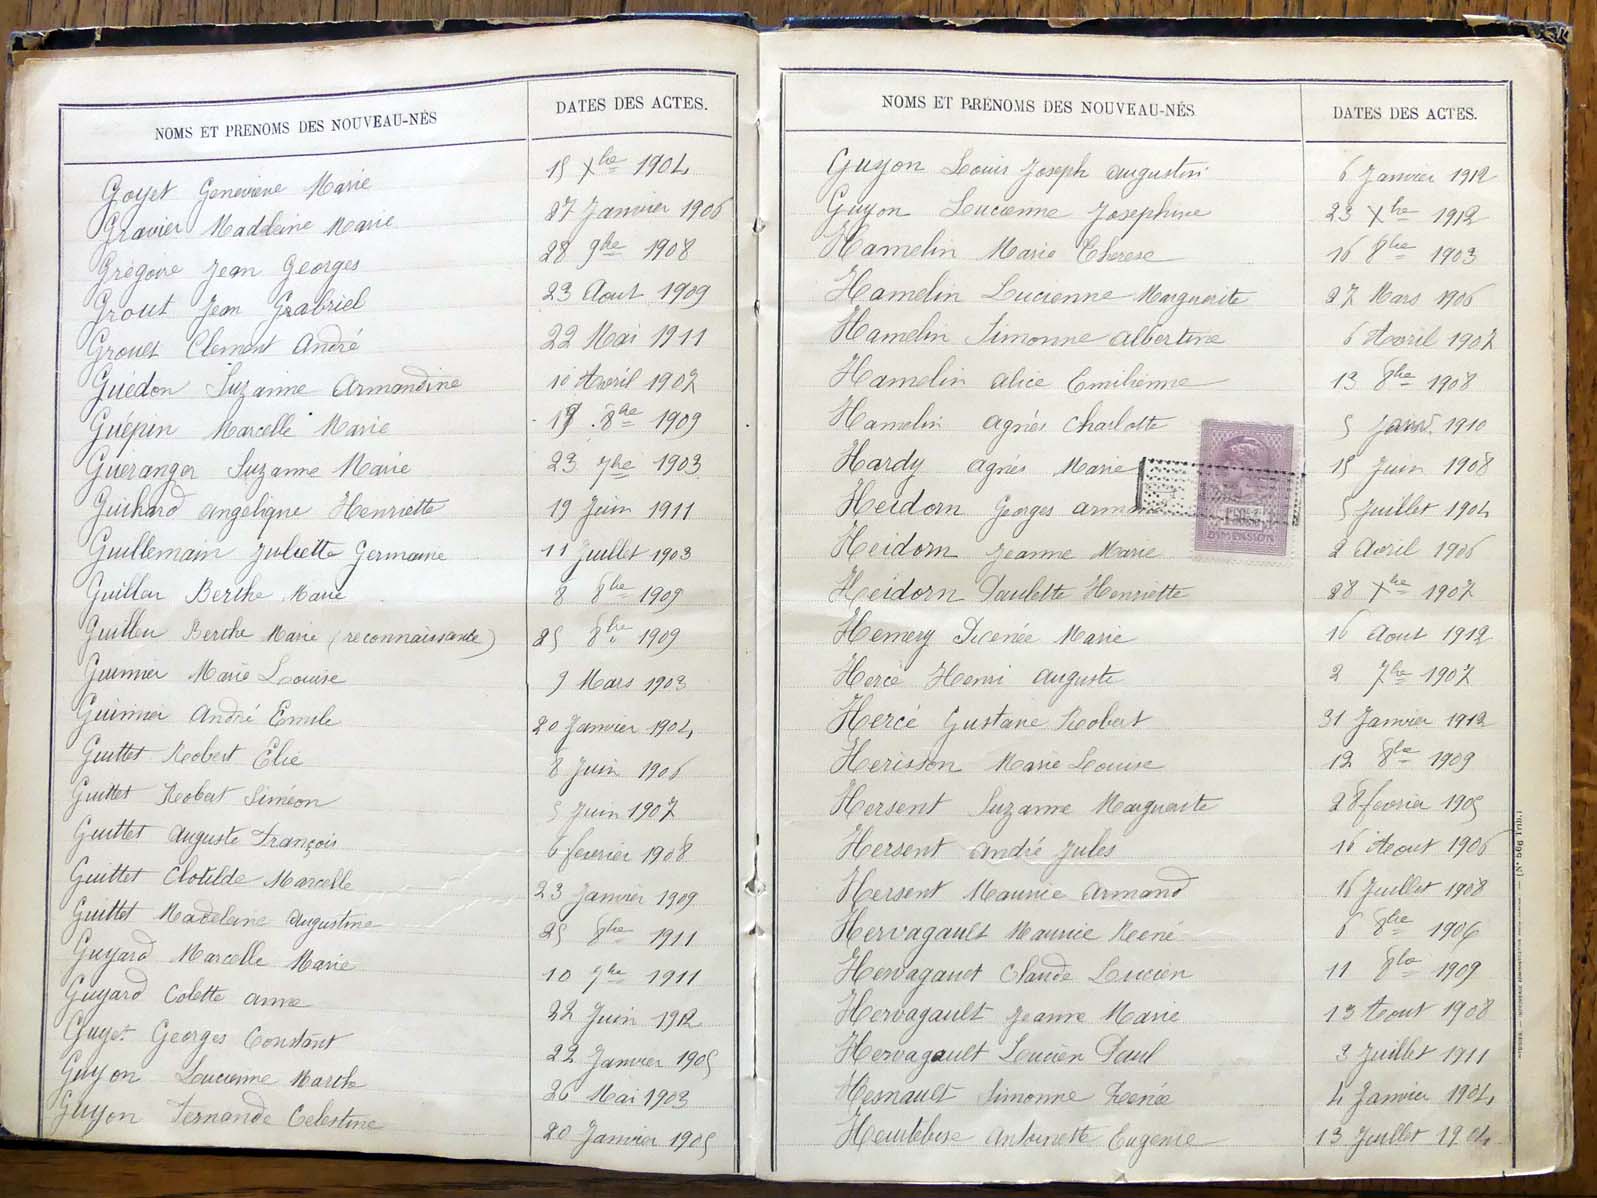 NOMS ET PRENOMS DES NOUVEAU-NÉS DATES DES ACTES.
Goyet Geneviève Marie 15 Xbre 1904
Gravier Madeleine Marie 27 Janvier 1906
Grégoire Jean Georges 28 9bre 1908
Grout Jean Grabriel 23 Aout 1909
Grouet Clement André 22 Mai 1911
Guédon Suzanne Armandine 10 Avril 1907
Guépin Marcelle Marie 19 8bre 1909
Guéranger Suzanne Marie 23 7bre 1903
Guihard Angélique Henriette 19 Juin 1911
Guillemain Juliette Germaine 11 Juillet 1903
Guilleu Berthe Marie 8 8bre 1909
Guilleu Berthe Marie (reconnaissante) 25 8bre 1909
Guimier Marie Louise 9 Mars 1903
Guimier André Emile 20 Janvier 1904
Guittet Robert Elie 8 Juin 1906
Guittet Robert Siméon 5 Juin 1907
Guittet Auguste François 6 fevrier 1908
Guittet Clotilde Marcelle 23 Janvier 1909
Guittet Madeleine Augustine 25 8bre 1911
Guyard Marcelle Marie 10 9bre 1911
Guyard Colette Anne 22 Juin 1912
Guyet Georges Constant 22 Janvier 1905
Guyon Lucienne Marthe 26 Mai 1903
Guyon Fernande Celestine 20 Janvier 1905
NOMS ET PRENOMS DES NOUVEAU-NÉS DATES DES ACTES.
Guyon Louis Joseph Augustin 6 Janvier 1912
Guyon Lucienne Josephine 23 Xbre 1912
Hamelin Marie Therese 16 8bre 1903
Hamelin Lucienne Marguerite 27 Mars 1906
Hamelin Simonne Albertine 6 Avril 1907
Hamelin Alice Emilienne 13 8bre 1908
Hamelin Agnés Charlotte 5 Janv. 1910
Hardy Agnés Marie 15 Juin 1908
Heidorn Georges 5 Juillet 1904
Heidorn Jeanne Marie 2 Avril 1906
Heidorn Paulette Henriette 28 Xbre 1907
Hemery Marie 16 Aout 1912
Hercé Henri Auguste 2 7bre 1907
Hercé Gustave Robert 31 Janvier 1912
Herisson Marie Louise 12 8bre 1909
Hersent Suzanne Marguerite 28 fevrier 1905
Hersent André Jules 16 Aout 1906
Hersent Maurice Armand 16 Juillet 1908
Hervagault Maurice René 6 8bre 1906
Hervagault Claude Lucien 11 8bre 1909
Hervagault Jeanne Marie 13 Aout 1908
Hervagault Lucien Paul 3 Juillet 1911
Hesnault Simonne Renée 4 Janvier 1904
Heutebise Antoinette Eugenie 13 Juillet 1904
DIMENSION